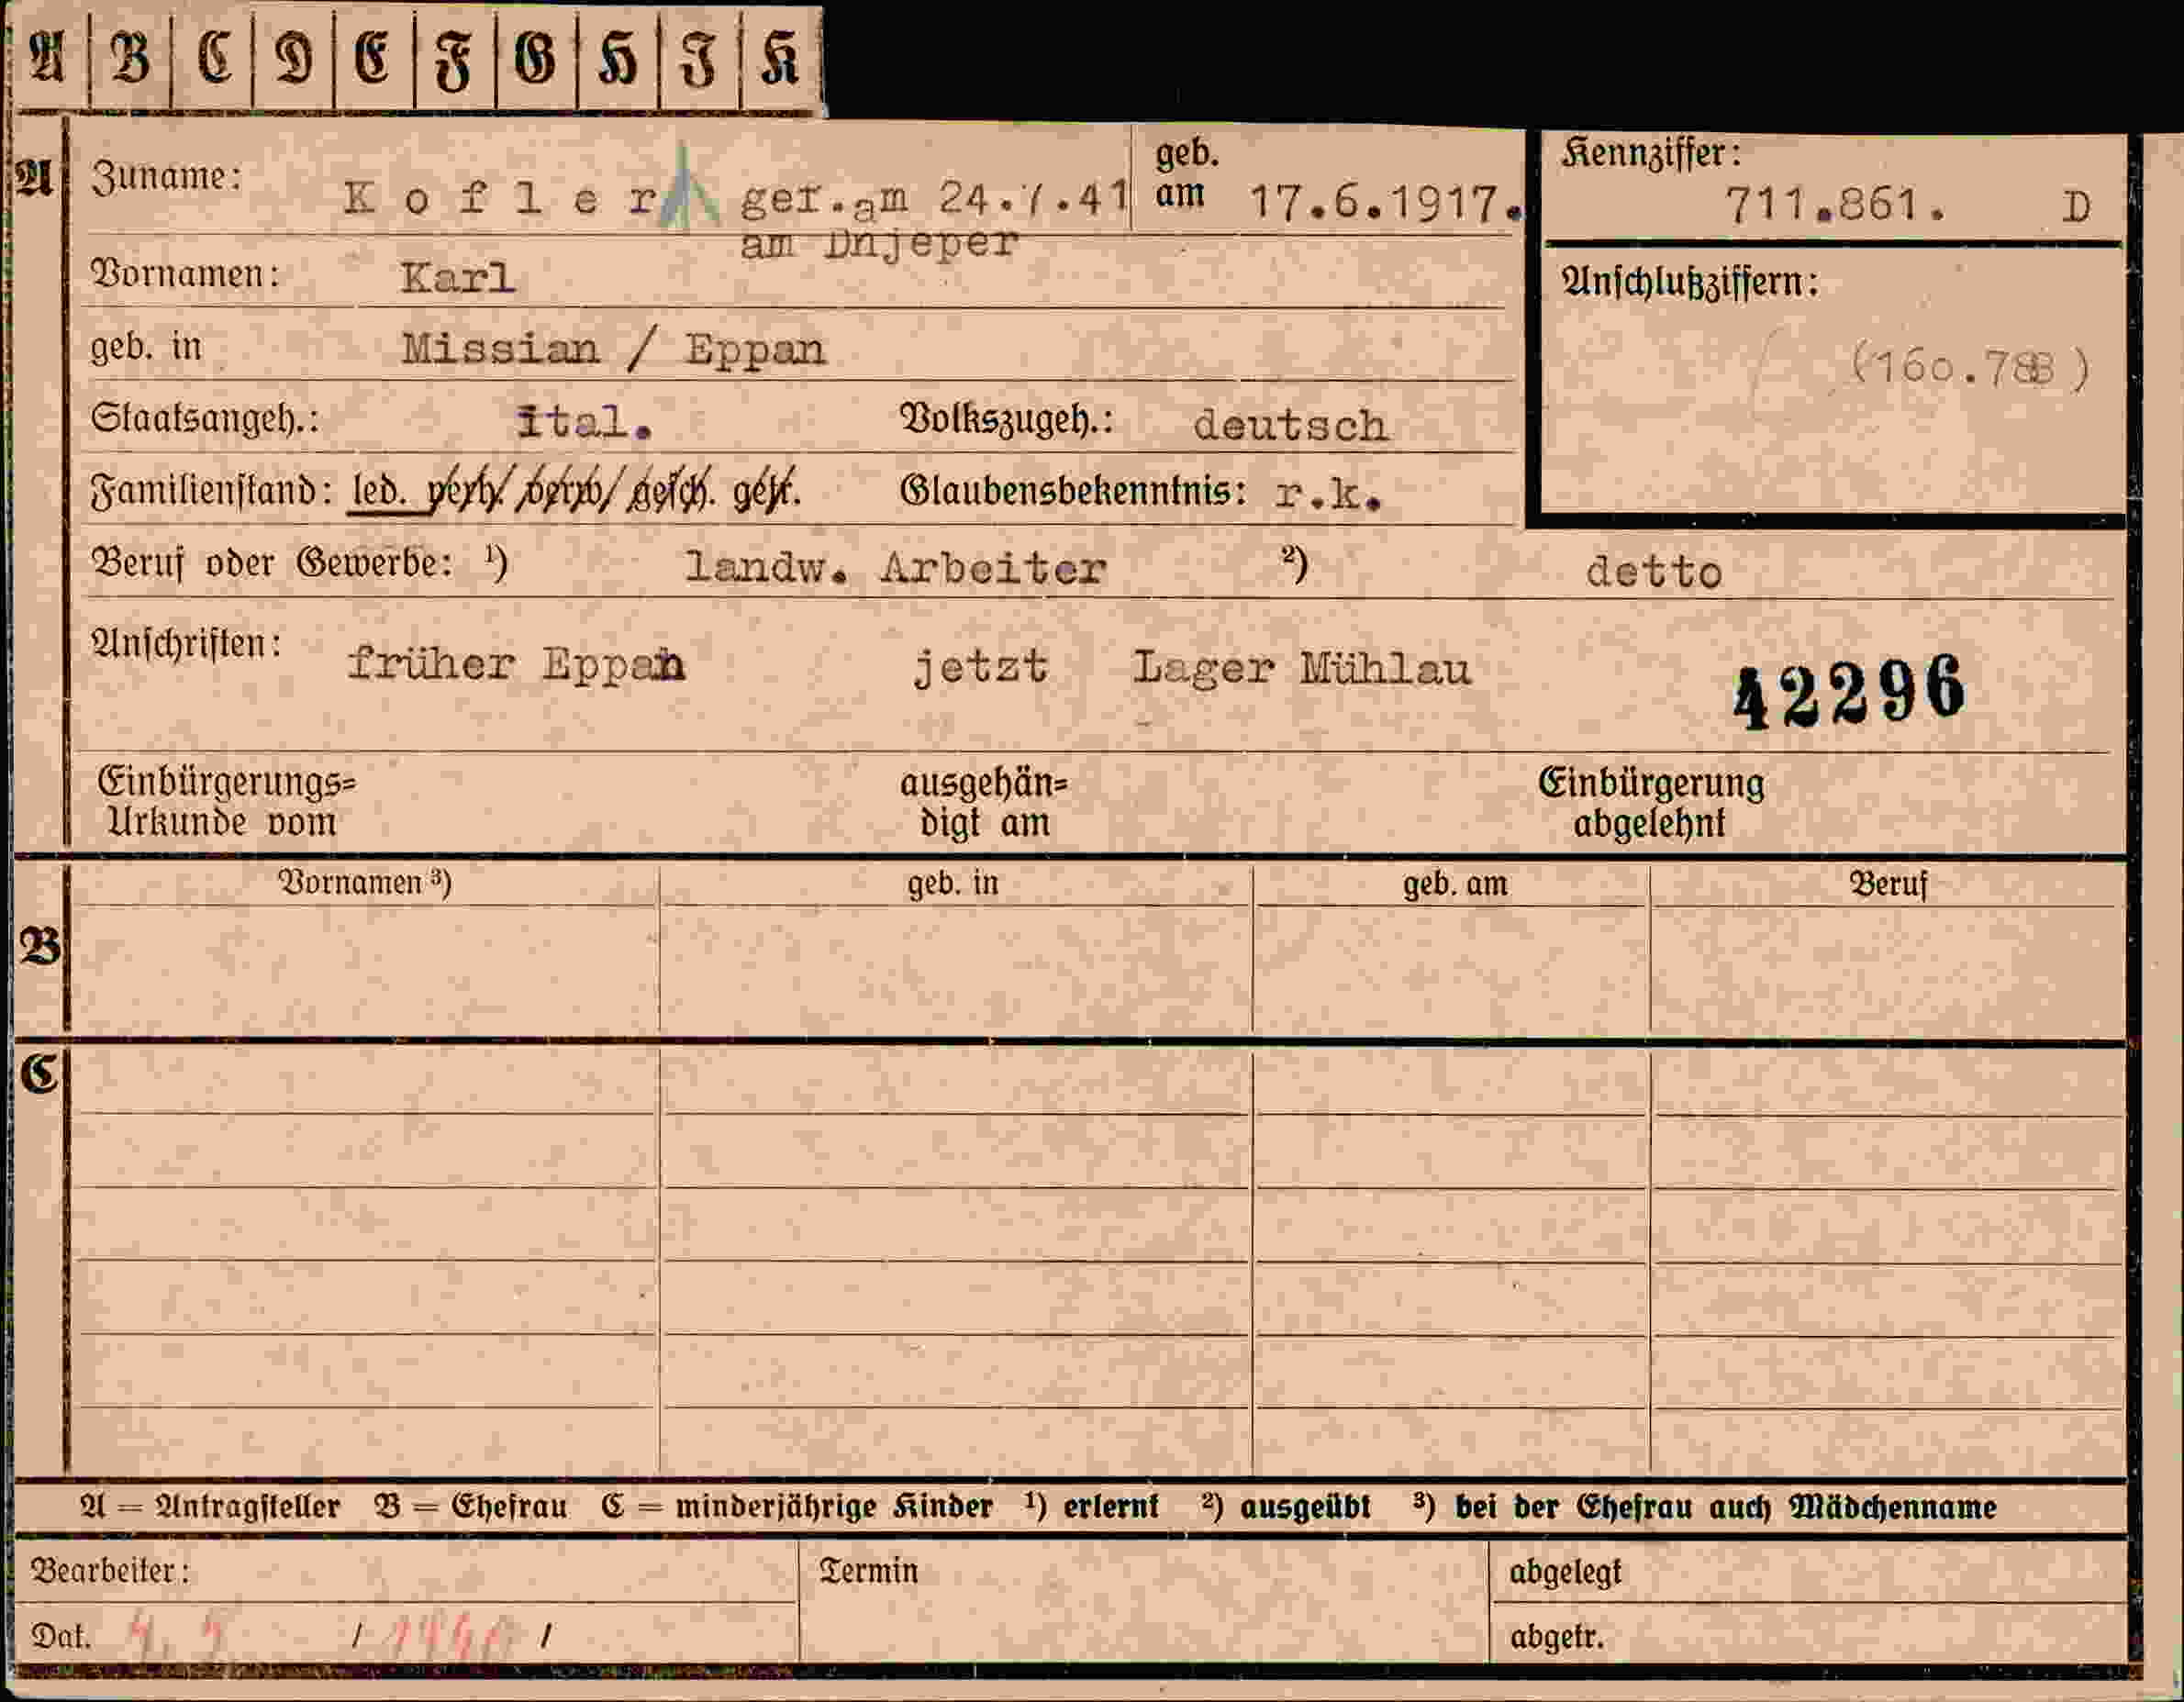 A B C D E F G H I K
A Zuname: Kofler gef.am 24.7.41 geb. am 17.6.1917. Kennziffer: 711.861. D
am Dnjeper
Vornamen: Karl Anschlußziffern:
geb. in Missian / Eppan
Staatsangeh.: ital. Volkszugeh.: deutsch
Familienstand: led. verh. verw. gesch. getr. Glaubensbekenntnis: r.k.
Beruf oder Gewerbe: ¹) landw. Arbeiter ²) detto
Anschriften: früher Eppan jetzt Lager Mühlau 42296
Einbürgerungs= ausgehän= Einbürgerung
Urkunde vom digt am abgelehnt
Vornamen ³) geb. in geb. am Beruf
B
C
A = Antragsteller B = Ehefrau C = minderjährige Kinder ¹) erlernt ²) ausgeübt ³) bei der Ehefrau auch Mädchenname
Bearbeiter: Termin abgelegt
Dat. / / abgetr.